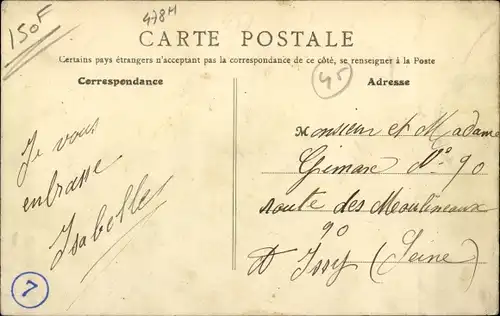 150F
478M
CARTE POSTALE
Certains pays étrangers n'acceptant pas la correspondance de ce côté, se renseigner à la Poste
45
Correspondance
Adresse
Je vous
enbrasse
Isabelle
7
Monsieur et Madame
Grimare N° 90
route des Moulineaux
90
Issy (Seine)